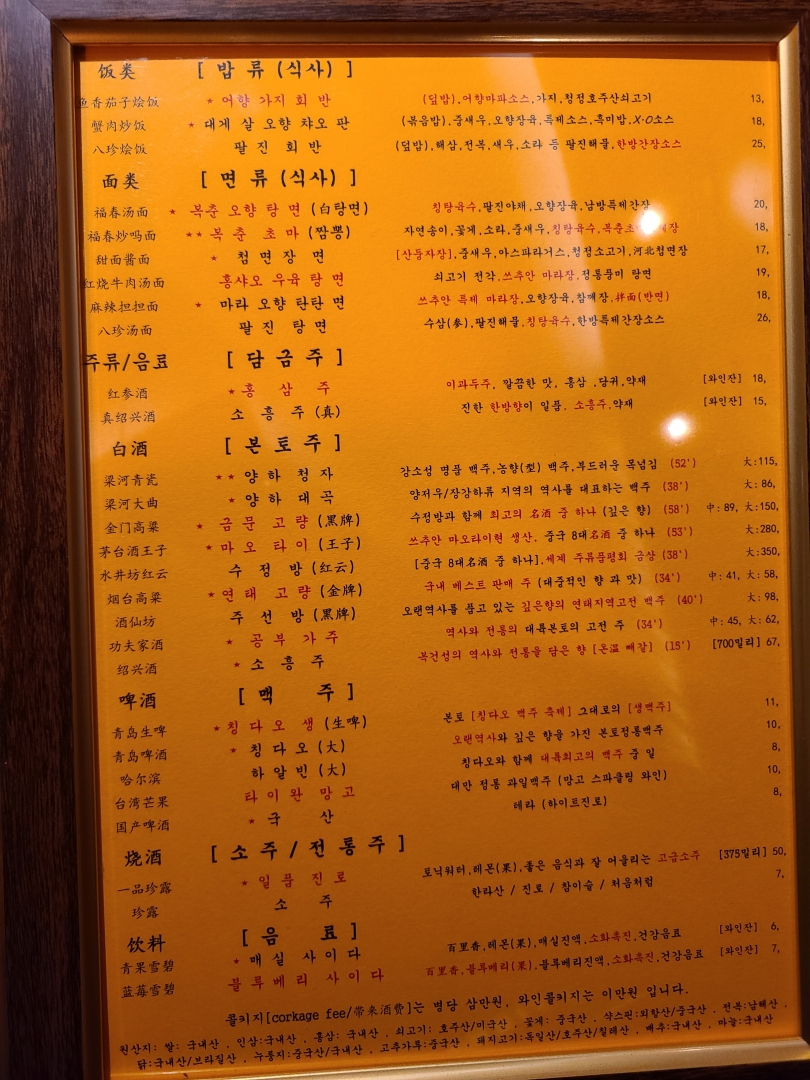 饭类 [ 밥 류 (식사) ]
鱼香茄子烩饭 ★ 어향 가지 회 반 (덮밥),어향마파소스,가지,청정호주산쇠고기 13,
蟹肉炒饭 ★ 대게 살 오향 챠오 판 (볶음밥),중새우,오향장육,특제소스,흑미밥,X·O소스 18,
八珍烩饭 팔 진 회 반 (덮밥),해삼,전복,새우,소라 등 팔진해물,한방간장소스 25,
面类 [ 면 류 (식사) ]
福春汤面 ★ 복춘 오향 탕 면 (白탕면) 칭탕육수,팔진야채,오향장육,남방특제간장 20,
福春炒吗面 ★★ 복 춘 초 마 (짬뽕) 자연송이,꽃게,소라,중새우,칭탕육수,복춘초마 18,
甜面酱面 ★ 첨 면 장 면 [산동자장],중새우,아스파라거스,청정소고기,河北첨면장 17,
红烧牛肉汤面 홍샤오 우육 탕 면 쇠고기 전각,쓰추안 마라장,정통풍미 탕면 19,
麻辣担担面 ★ 마라 오향 탄탄 면 쓰추안 특제 마라장,오향장육,참깨장,拌面(반면) 18,
八珍汤面 팔 진 탕 면 수삼(參),팔진해물,칭탕육수,한방특제간장소스 26,
주류/음료 [ 담 금 주 ]
红参酒 ★ 홍 삼 주 이과두주, 깔끔한 맛, 홍삼 ,당귀,약재 [와인잔] 18,
真绍兴酒 소 흥 주 (真) 진한 한방향이 일품, 소흥주,약재 [와인잔] 15,
白酒 [ 본 토 주 ]
梁河青瓷 ★★ 양 하 청 자 강소성 명품 백주,농향(型) 백주,부드러운 목넘김 (52') 大:115,
梁河大曲 ★ 양 하 대 곡 양저우/장강하류 지역의 역사를 대표하는 백주 (38') 大: 86,
金门高粱 ★ 금 문 고 량 (黑牌) 수정방과 함께 최고의 名酒 중 하나 (깊은 향) (58') 中: 89, 大:150,
茅台酒王子 ★ 마 오 타 이 (王子) 쓰추안 마오타이현 생산, 중국 8대名酒 중 하나 (53') 大:280,
水井坊红云 수 정 방 (红云) [중국 8대名酒 중 하나],세계 주류품평회 금상 (38') 大:350,
烟台高粱 ★ 연태 고량 (金牌) 국내 베스트 판매 주 (대중적인 향 과 맛) (34') 中: 41, 大: 58,
酒仙坊 주 선 방 (黑牌) 오랜역사를 품고 있는 깊은향의 연태지역고전 백주 (40') 大: 98,
功夫家酒 ★ 공 부 가 주 역사와 전통의 대륙본토의 고전 주 (34') 中: 45, 大: 62,
绍兴酒 ★ 소 흥 주 복건성의 역사와 전통을 담은 향 [온温 빼갈] (15') [700밀리] 67,
啤酒 [ 맥 주 ]
青岛生啤 ★ 칭 다 오 생 (生啤) 본토 [칭다오 맥주 축제] 그대로의 [생맥주] 11,
青岛啤酒 ★ 칭 다 오 (大) 오랜역사와 깊은 향을 가진 본토정통맥주 10,
哈尔滨 하 얼 빈 (大) 칭다오와 함께 대륙최고의 맥주 중 일 8,
台湾芒果 타 이 완 망 고 대만 정통 과일맥주 (망고 스파클링 와인) 10,
国产啤酒 ★ 국 산 테라 (하이트진로) 8,
烧酒 [ 소 주 / 전 통 주 ]
一品珍露 ★ 일 품 진 로 토닉워터,레몬(果),좋은 음식과 잘 어울리는 고급소주 [375밀리] 50,
珍露 소 주 한라산 / 진로 / 참이슬 / 처음처럼 7,
饮料 [ 음 료 ]
青果雪碧 ★ 매 실 사 이 다 百里香,레몬(果),매실진액,소화촉진,건강음료 [와인잔] 6,
蓝莓雪碧 블 루 베 리 사 이 다 百里香,블루베리(果),블루베리진액,소화촉진,건강음료 [와인잔] 7,
콜키지[corkage fee/带来酒费]는 병당 삼만원, 와인콜키지는 이만원 입니다.
원산지: 쌀: 국내산 , 인삼:국내산 , 홍삼: 국내산 , 쇠고기: 호주산/미국산 , 꽃게: 중국산 , 샥스핀:외항산/중국산 , 전복:남해산 ,
닭:국내산/브라질산 , 누룽지:중국산/국내산 , 고추가루:중국산 , 돼지고기:독일산/호주산/칠레산 , 배추:국내산 , 마늘:국내산